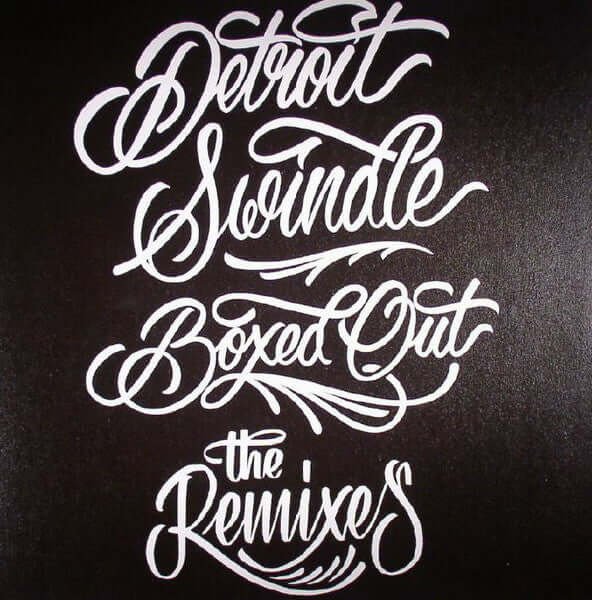 Detroit
Swindle
Boxed Out
the
Remixes